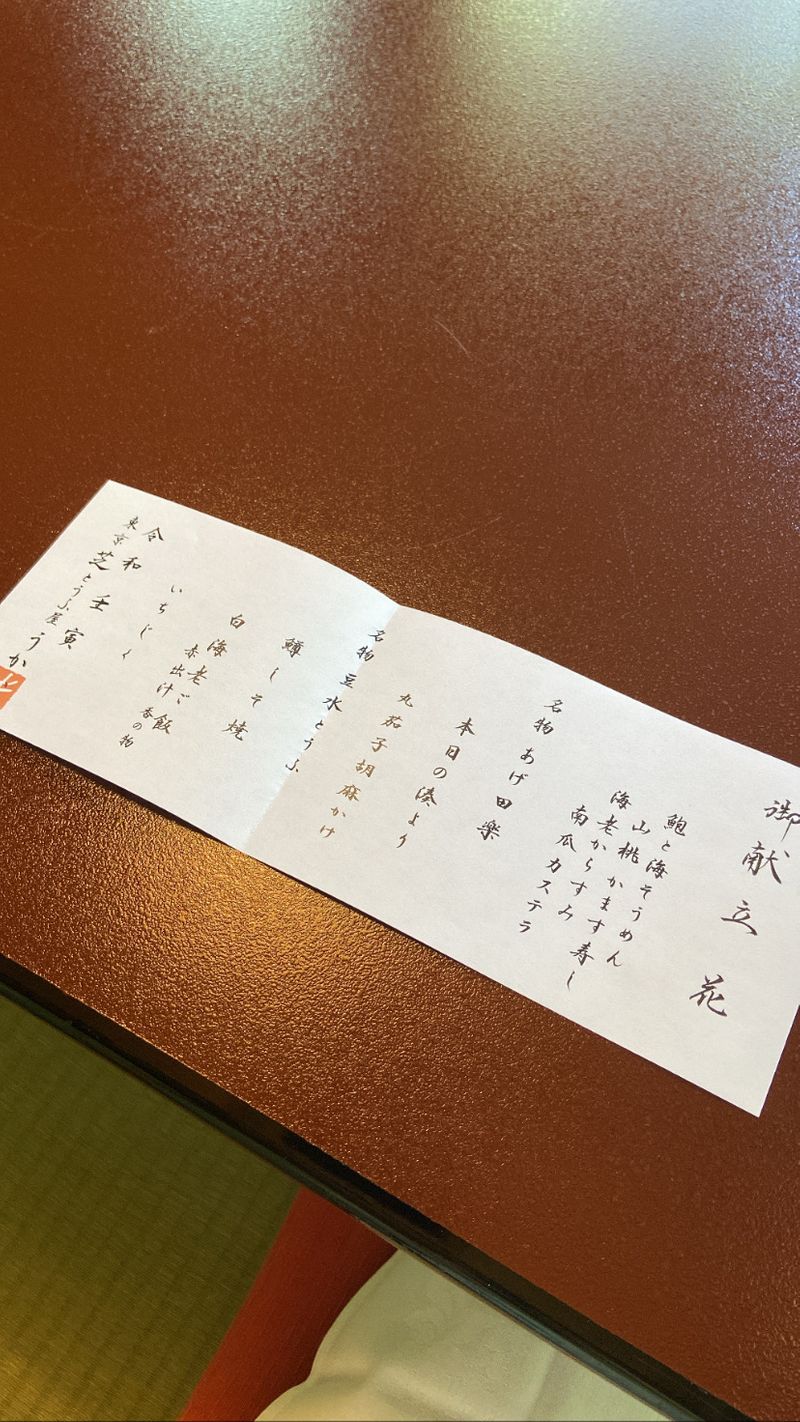 御献立 花
鮑と海そうめん
山桃 かます寿し
海老からすみ
南瓜カステラ
名物 あげ田楽
本日の湊より
丸茄子胡麻かけ
名物 豆水とうふ
鱒しそ焼
白海老ご飯
赤出汁 香の物
いちじく
令和壬寅
東京芝とうふ屋うか